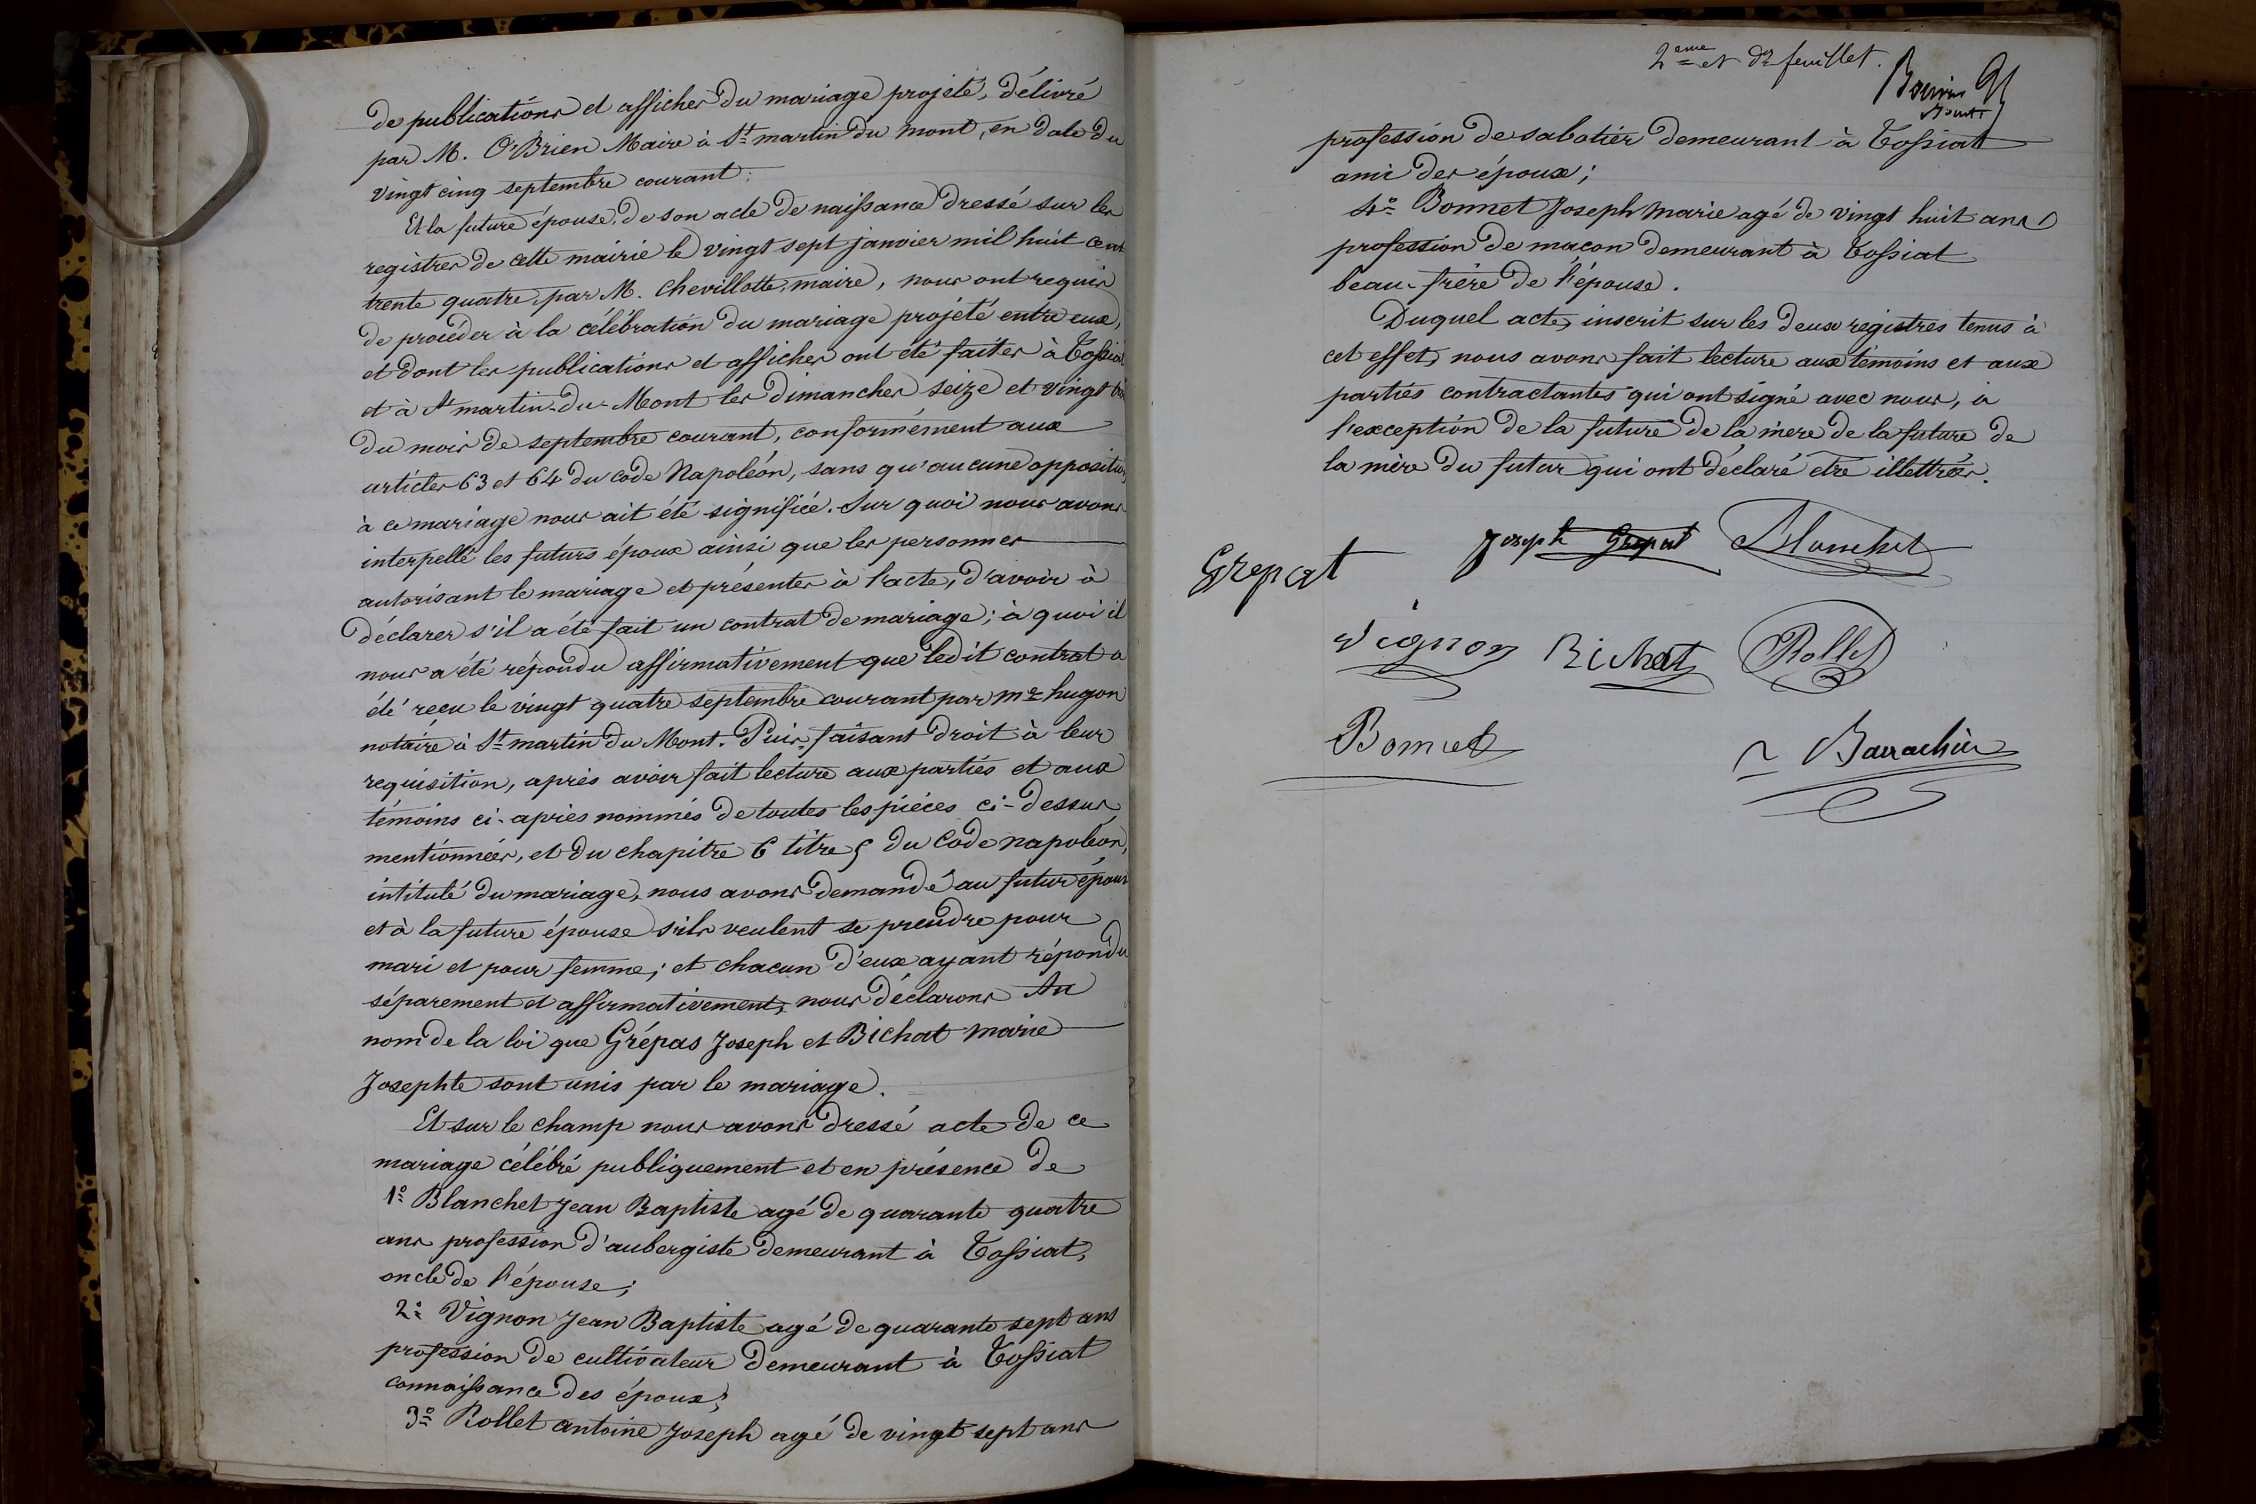 de publications et affiches du mariage projeté, délivré
par M. O'Brien Maire à St martin du Mont, en date du
vingt cinq septembre courant:
Et la future épouse, de son acte de naissance dressé sur les
registres de cette mairie le vingt sept janvier mil huit cent
trente quatre, par M. Chevillotte, maire, nous ont requis
de procéder à la célébration du mariage projété entre eux,
et dont les publications et affiches ont été faites à Tossiat
et à St martin-du-Mont les dimanches seize et vingt
du mois de septembre courant, conformément aux
articles 63 et 64 du code Napoléon, sans qu'aucune opposition
à ce mariage nous ait été signifiée. Sur quoi nous avons
interpellé les futurs époux ainsi que les personnes
autorisant le mariage et présentes à l'acte, d'avoir à
déclarer s'il a été fait un contrat de mariage; à quoi il
nous a été répondu affirmativement que ledit contrat a
été reçu le vingt quatre septembre courant par Me hugon
notaire à St martin du Mont. Puis, faisant droit à leur
requisition, après avoir fait lecture aux parties et aux
témoins ci-après nommés de toutes les pièces ci-dessus
mentionnées, et du chapitre 6 titre 5 du Code napoléon,
intitulé du mariage, nous avons demandé au futur époux
et à la future épouse s'ils veulent se prendre pour
mari et pour femme; et chacun d'eux ayant répondu
séparement et affirmativement, nous déclarons Au
nom de la loi que Grépas Joseph et Bichat Marie
Josephte sont unis par le mariage.
Et sur le champ nous avons dressé acte de ce
mariage célébré publiquement et en présence de
1o Blanchet Jean Baptiste agé de quarante quatre
ans profession d'aubergiste demeurant à Tossiat,
oncle de l'épouse;
2o Vignon Jean Baptiste agé de quarante sept ans
profession de cultivateur demeurant à Tossiat
connaissance des époux;
3o Rollet antoine Joseph agé de vingt sept ans
2eme et dr feuillet.
profession de sabotier demeurant à Tossiat
ami des époux;
4o Bonnet Joseph Marie agé de vingt huit ans
profession de macon demeurant à Tossiat
beau-frère de l'épouse.
Duquel acte, inscrit sur les deux registres tenus à
cet effet, nous avons fait lecture aux témoins et aux
parties contractantes qui ont signé avec nous, à
l'exception de la future de la mère de la future de
la mère du futur qui ont déclaré etre illettrées.
Grepat Joseph Grepat Blanchet
Vignon Bichat Rollet
Bonnet Barrachin